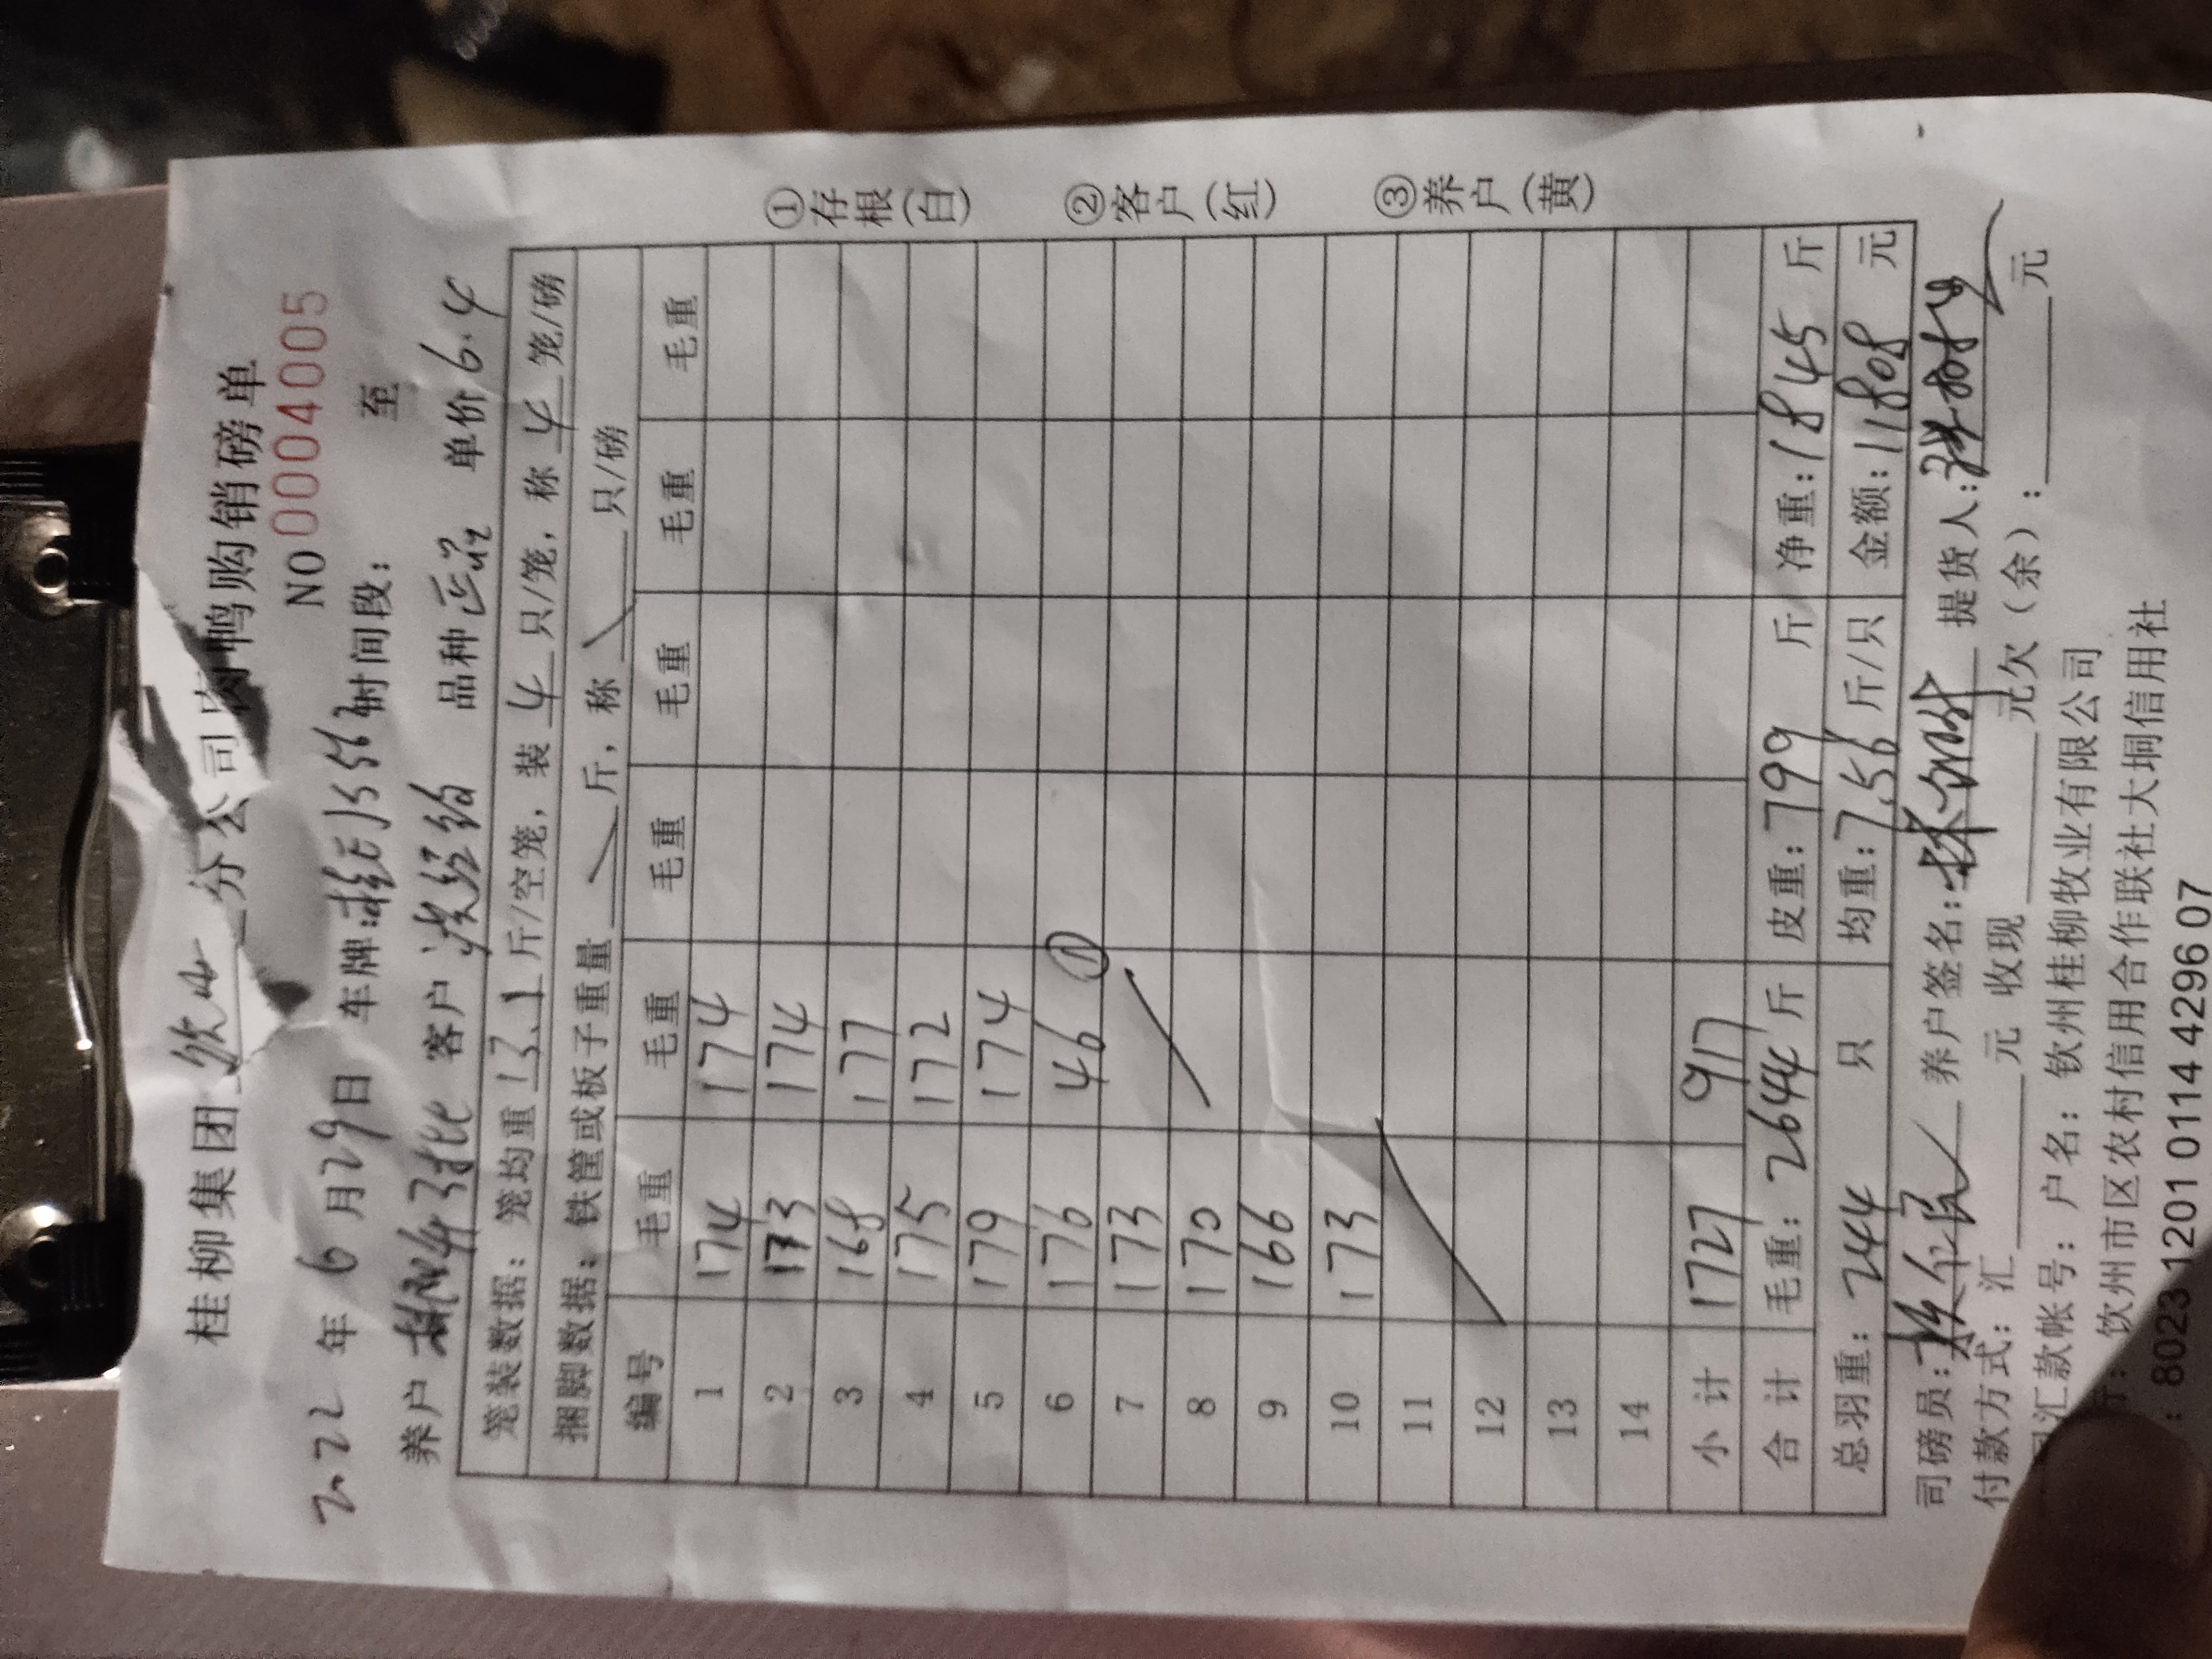 桂柳集团 钦州 分公司肉鸭购销磅单
NO 0004005
2022 年 6 月 29 日 车牌: 时间段: 至
养户 客户 品种 单价 6.4
笼装数据: 笼均重 13.1 斤/空笼, 装 4 只/笼, 称 4 笼/磅
捆脚数据: 铁筐或板子重量 斤, 称 只/磅
编号 毛重 毛重 毛重 毛重 毛重 毛重
1 174 174
2 173 174
3 168 177
4 175 172
5 179 174
6 176 46 ①
7 173
8 170
9 166
10 173
11
12
13
14
小计 1727 917
合计 毛重: 2644 斤 皮重: 799 斤 净重: 1845 斤
总羽重: 244 只 均重: 7.56 斤/只 金额: 11808 元
司磅员: 养户签名: 提货人:
付款方式: 汇 元 收现 元欠(余): 元
汇款帐号: 户名: 钦州桂柳牧业有限公司
行: 钦州市区农村信用合作联社大垌信用社
: 8023 1201 0114 4296 07
①存根(白) ②客户(红) ③养户(黄)